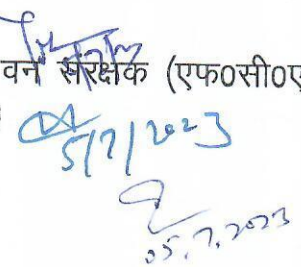 वन संरक्षक (एफ0सी0ए
5/7/2023
05.7.2023